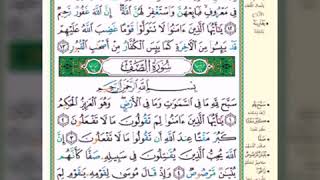 فِى مَعْرُوفٍ فَبَايِعْهُنَّ وَاسْتَغْفِرْ لَهُنَّ اللَّهَ إِنَّ اللَّهَ غَفُورٌ رَّحِيمٌ
يَا أَيُّهَا الَّذِينَ ءَامَنُوا لَا تَتَوَلَّوْا قَوْمًا غَضِبَ اللَّهُ عَلَيْهِمْ
قَدْ يَئِسُوا مِنَ الْآخِرَةِ كَمَا يَئِسَ الْكُفَّارُ مِنْ أَصْحَابِ الْقُبُورِ ١٣
سُورَةُ الصَّفِّ
بِسْمِ اللَّهِ الرَّحْمَٰنِ الرَّحِيمِ
سَبَّحَ لِلَّهِ مَا فِى السَّمَاوَاتِ وَمَا فِى الْأَرْضِ وَهُوَ الْعَزِيزُ الْحَكِيمُ
١ يَا أَيُّهَا الَّذِينَ ءَامَنُوا لِمَ تَقُولُونَ مَا لَا تَفْعَلُونَ ٢
كَبُرَ مَقْتًا عِندَ اللَّهِ أَن تَقُولُوا مَا لَا تَفْعَلُونَ ٣
إِنَّ اللَّهَ يُحِبُّ الَّذِينَ يُقَاتِلُونَ فِى سَبِيلِهِ صَفًّا كَأَنَّهُم
بُنْيَانٌ مَّرْصُوصٌ ٤ وَإِذْ قَالَ مُوسَىٰ لِقَوْمِهِ يَا قَوْمِ لِمَ